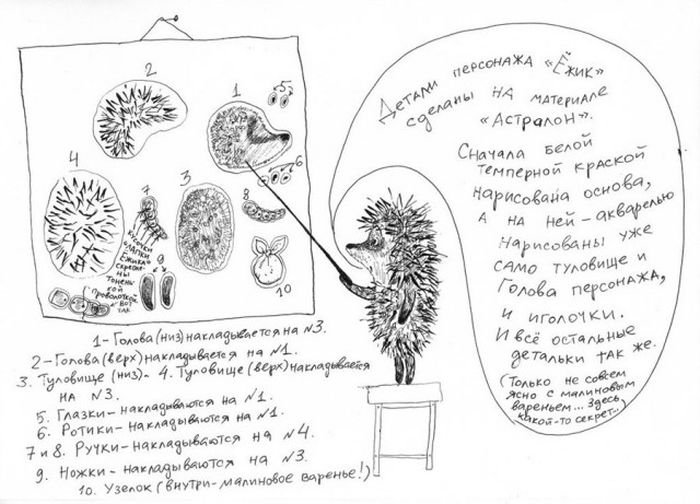 2
1
5
6
4
7
3
8
9
10
Кусочки
"лапки
Ёжика"
скрепле-
ны
тонень-
кой
проволочкой.
Вот
так
Детали персонажа «Ёжик»
сделаны на материале
«Астралон».
Сначала белой
темперной краской
нарисована основа,
а на ней - акварелью
нарисованы уже
само туловище и
голова персонажа,
и иголочки.
И всё остальные
детальки так же.
(Только не совсем
ясно с малиновым
вареньем... Здесь
какой-то секрет...)
1- Голова (низ) накладывается на №3.
2- Голова (верх) накладывается на №1.
3. Туловище (низ)- 4. Туловище (верх) накладывается
на №3.
5. Глазки- накладываются на №1.
6. Ротики- накладываются на №1.
7 и 8. Ручки- накладываются на №4.
9. Ножки- накладываются на №3.
10. Узелок (внутри- малиновое варенье!)